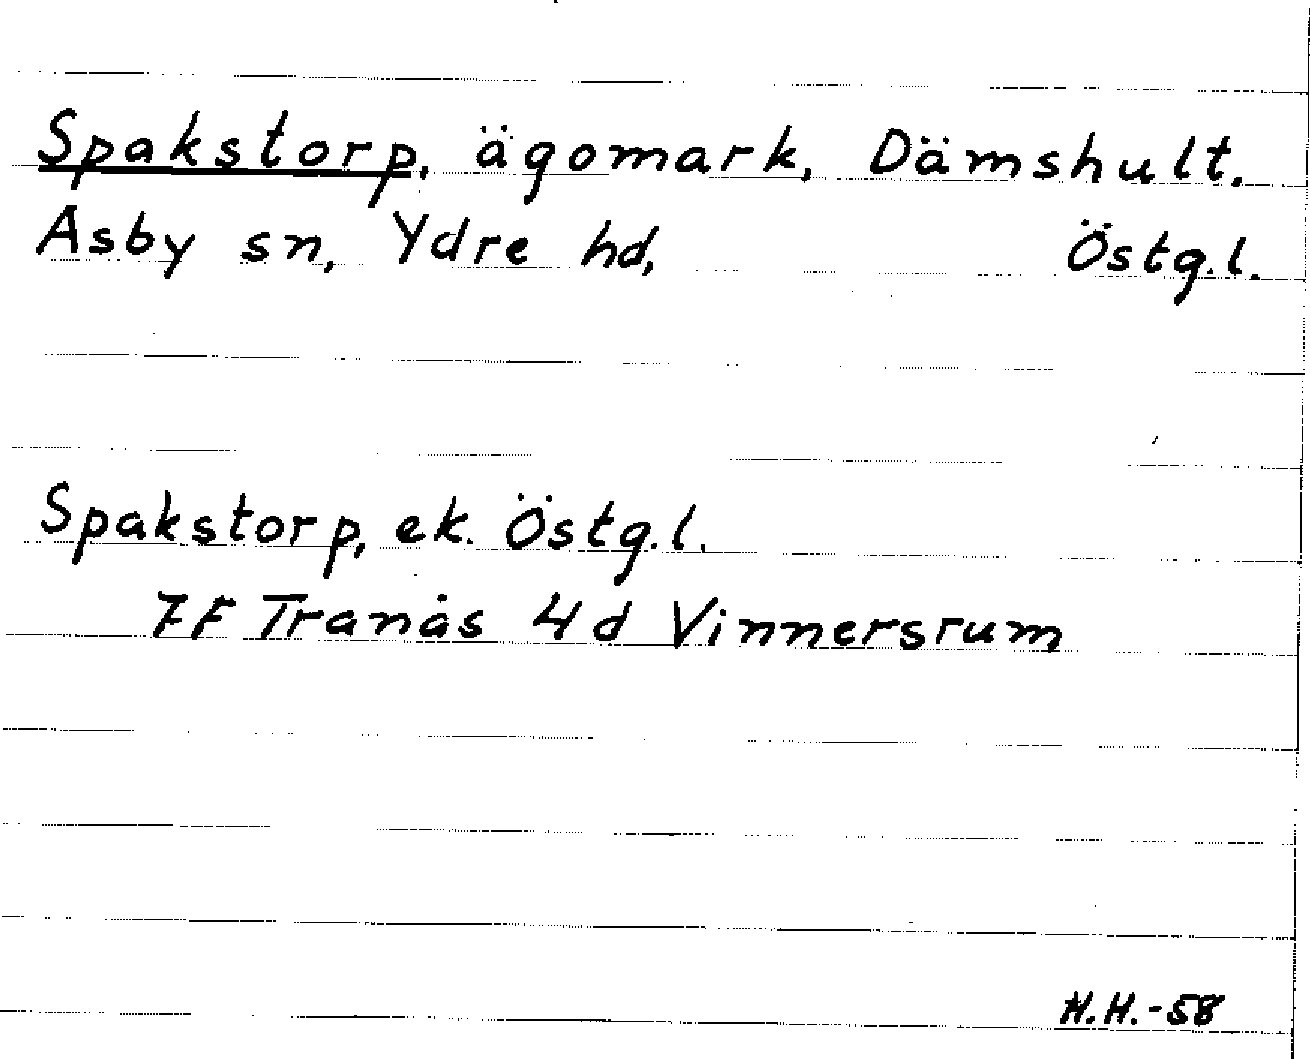 Spakstorp, ägomark, Dämshult.
Asby sn, Ydre hd, Östg.l.
Spakstorp, ek. Östg.l.
7F Tranås 4d Vinnersrum
H.H.-58